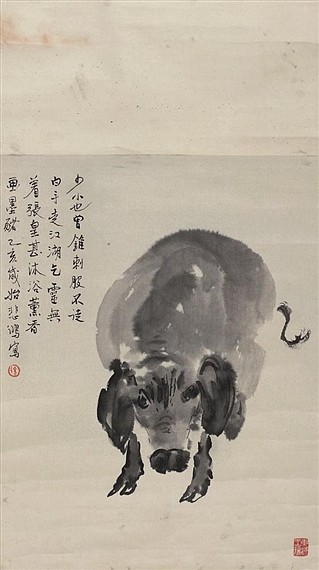 少小也曾錐刺股不徒
白手走江湖乞靈無
着張皇甚沐浴薰香
畫墨豬乙亥歲始悲鴻寫